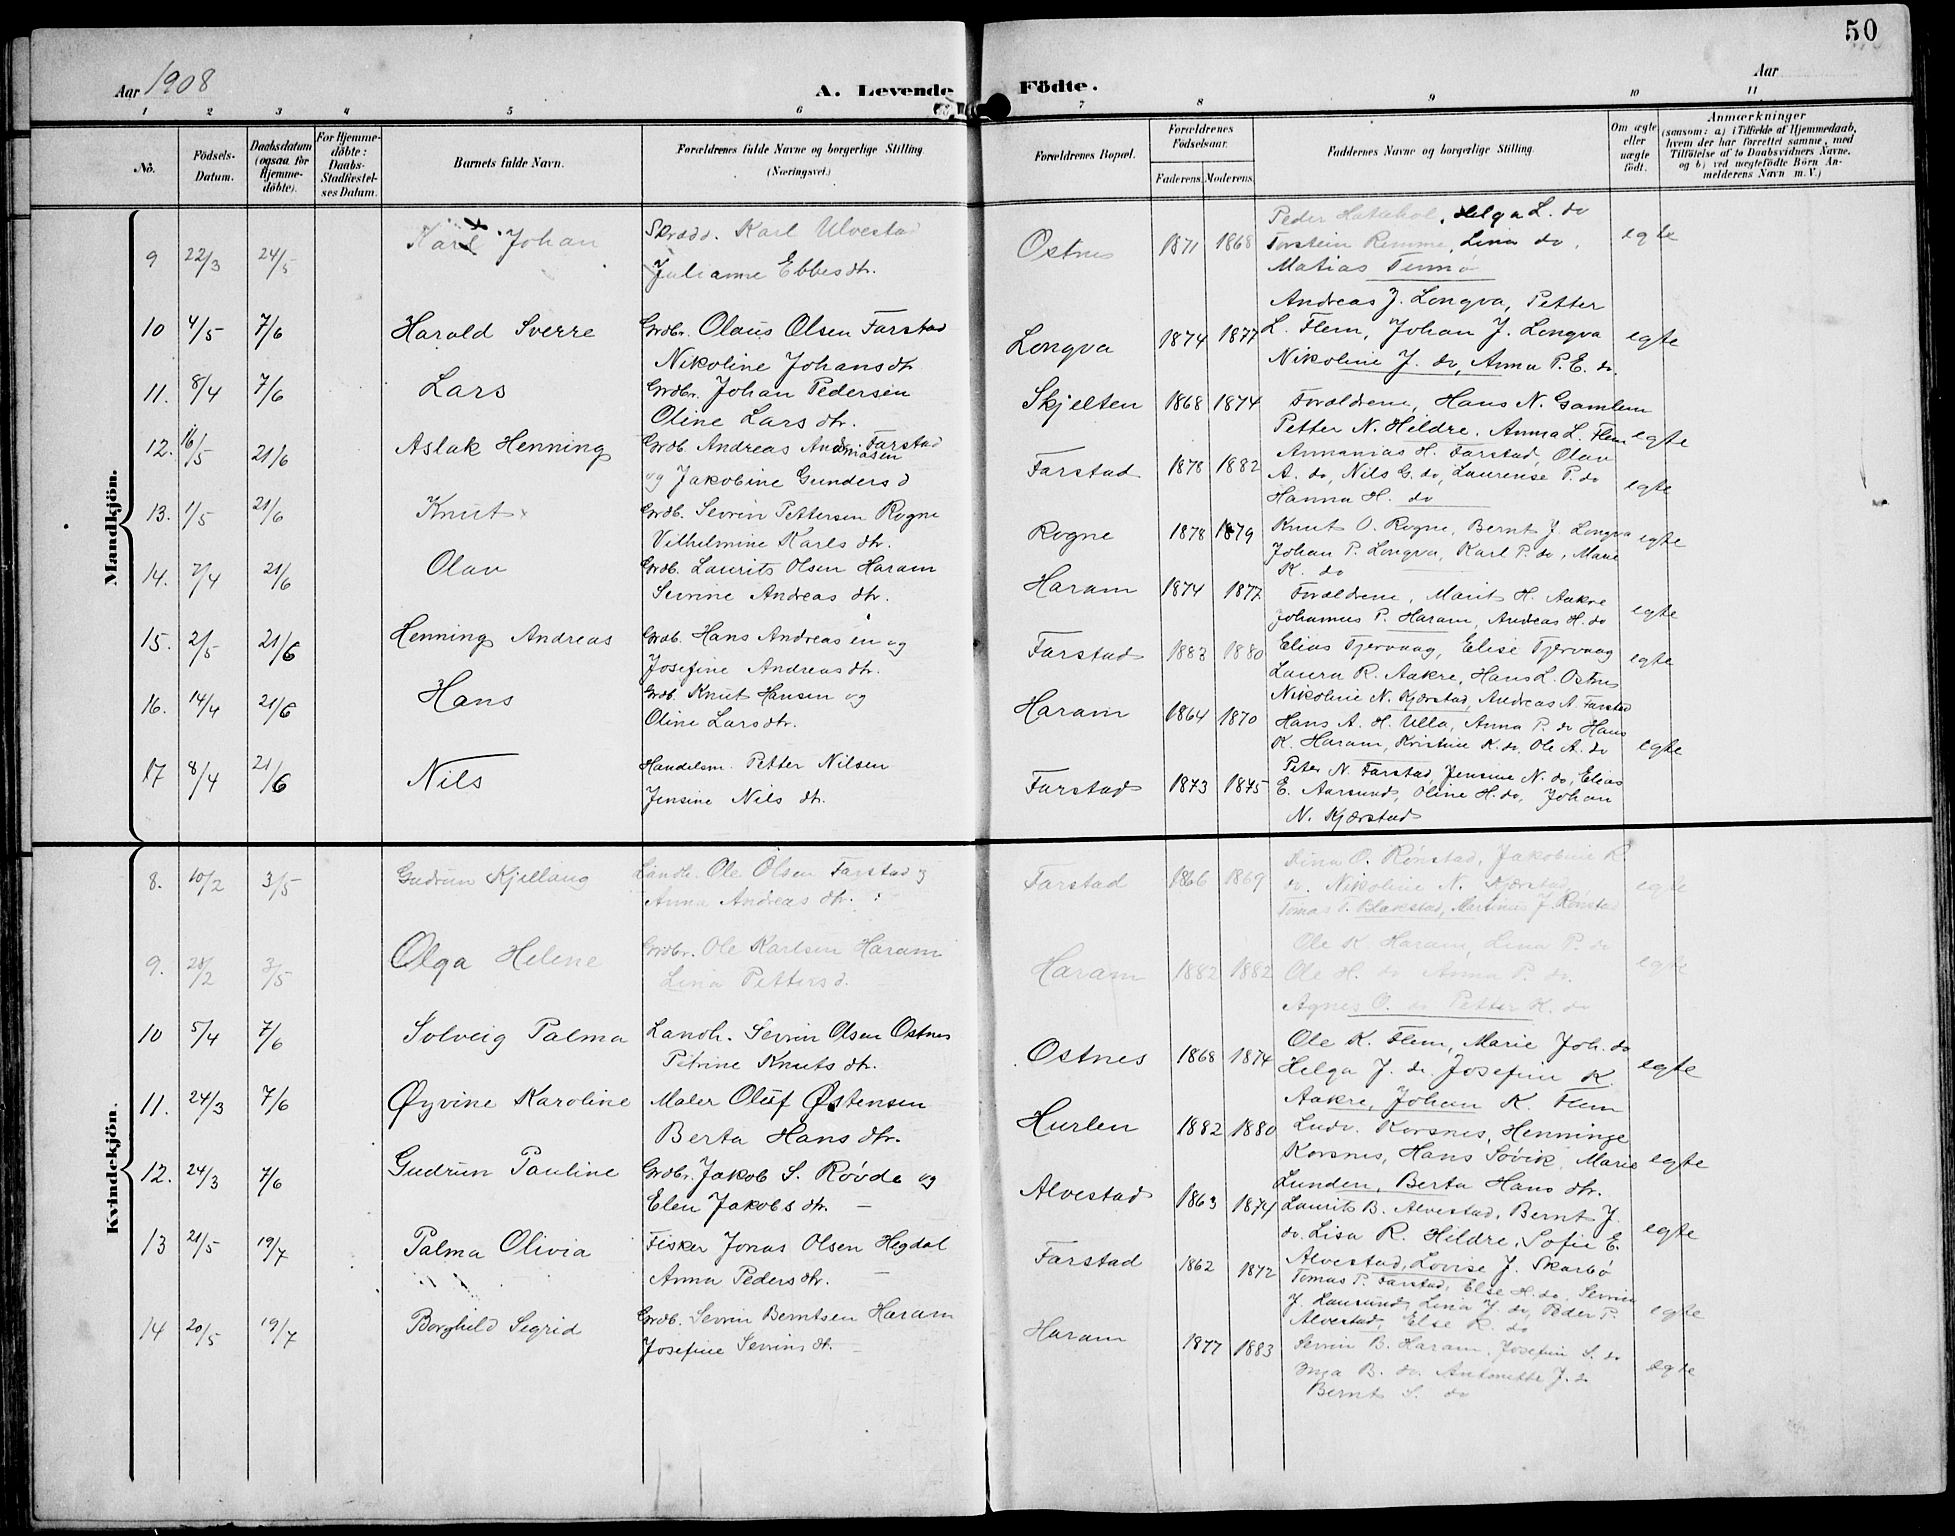 50
Aar 1908
A. Levende Födte.
Aar
1 2 3 4 5 6 7 8 9 10 11
No.
Födsels-Datum.
Daabsdatum (ogsaa for Hjemme-döbte).
For Hjemme-döbte: Daabs-Stadfæstel-ses Datum.
Barnets fulde Navn.
Forældrenes fulde Navne og borgerlige Stilling (Næringsvei.)
Forældrenes Bopæl.
Forældrenes Födselsaar.
Faderens. Moderens.
Faddernes Navne og borgerlige Stilling.
Om ægte eller uægte födt.
Anmærkninger
(saasom: a) i Tilfælde af Hjemmedaab, hvem der har forrettet samme, med Tilföielse af to Daabsvidners Navne, og b) ved uægtefödte Börn An-melderens Navn m. V.)
Mandkjön.
9 22/3 24/5 Karl Johan Skrædd. Karl Ulvestad
Julianne Ebbesdtr. Ostnes 1871 1868
Peder Hattehol, Helga L. do
Torstein Remme, Lina do,
Matias egte
10 4/5 7/6 Harald Sverre Grdbr. Olaus Olsen Farstad
Nikoline Johansdtr Longva 1874 1877
Andreas J. Longva, Petter
L. Flem, Johan J. Longva
Nikoline J. do, Anna P. E. do. egte
11. 8/4 7/6 Lars Grdbr. Johan Pedersen
Oline Lars dtr. Skjelten 1868 1874
Forældrene, Hans N. Gamlem
Petter N. Hildre, Anna L. Flem egte
12. 16/5 21/6 Aslak Henning Grdb. Andreas Farstad
og Jakobine Gundersd Farstad 1878 1882
Annanias H. Farstad, Olav
A. do, Nils G. do, Laurense P. do
Hanna H. do egte
13. 1/5 21/6 Knut Grdb. Sevrin Pettersen Rogne
Vilhelmine Karls dtr. Rogne 1878 1879
Knut O. Rogne, Bernt J. Longva
Johan P. Longva, Karl P. do, Marie
K. do egte
14. 7/4 21/6 Olav Grdb. Laurits Olsen Haram
Sevrine Andreas dtr. Haram 1874 1877
Forældrene, Marit H. Aakre
Johannes P. Haram, Andreas H. do egte
15. 2/5 21/6 Henning Andreas Grdb. Hans Andreasen og
Josefine Andreasdtr. Farstad 1883 1880
Elias Tjervaag, Elise Tjervaag
Laura R. Aakre, Hans L. Ostnes
Nikoline N. Kjærstad, Andreas A. Farstad egte
16. 14/4 21/6 Hans Grdb. Knut Hansen og
Oline Larsdtr. Haram 1864 1870
Hans A. H. Ulla, Anna P. do Hans
K. Haram, Kristine K. do, Ole A. do egte
17 8/4 21/6 Nils Handelsm. Petter Nilsen
Jensine Nils dtr. Farstad 1873 1875
Peter N. Farstad, Jensine N. do, Elias
E. Aarsund, Oline H. do, Johan
N. Kjærstad
Kvindekjön.
8. 10/2 3/5 Gudrun Kjellaug Landh. Ole Olsen Farstad og
Anna Andreas dtr. Farstad 1866 1869
Rina O. Rønstad, Jakobine R.
do. Nikoline N. Kjærstad,
Tomas T. Blakstad, Martinus J. Rønstad egte
9. 28/2 3/5 Olga Helene Grdbr. Ole Karlsen Haram
Lina Petters d. Haram 1882 1882
Ole K. Haram, Lina P. do
Ole H. do Anna P. do.
Agnes O. do Petter K. do egte
10 5/4 7/6 Solveig Palma Landh. Sevrin Olsen Ostnes
Petrine Knuts dtr. Ostnes 1868 1874
Ole K. Flem, Marie Joh. do
Helga J. do. Josefine K.
Aakre, Johan K. Flem egte
11. 24/3 7/6 Øyvine Karoline Maler Oluf Østensen
Berta Hans dtr. Hurlen 1882 1880
Ludv. Korsnes, Henninge
Korsnes, Hans Søvik, Marie
Lunden, Berta Hans dtr. egte
12. 24/3 7/6 Gudrun Pauline Grdbr. Jakob S. Røvde og
Elen Jakobs dtr. Alvestad 1863 1874
Laurits B. Alvestad, Bernt J.
do. Lisa R. Hildre, Sofie E.
Alvestad, Lovise J. Skarbø egte
13 21/5 19/7 Palma Olivia Fisker Jonas Olsen Hegdal
Anna Pedersdtr. Farstad 1862 1872
Tomas P. Farstad, Else H. do, Sevrin
J. Lausund, Lina J. do, Peder P.
Alvestad, Else R. do egte
14 20/5 19/7 Borghild Sigrid Grdb. Sevrin Berntsen Haram
Josefine Sevrins dt. Haram 1877 1883
Sevrin B. Haram, Josefine S. do
Inga B. do. Antonette J. do
Bernt S. do egte